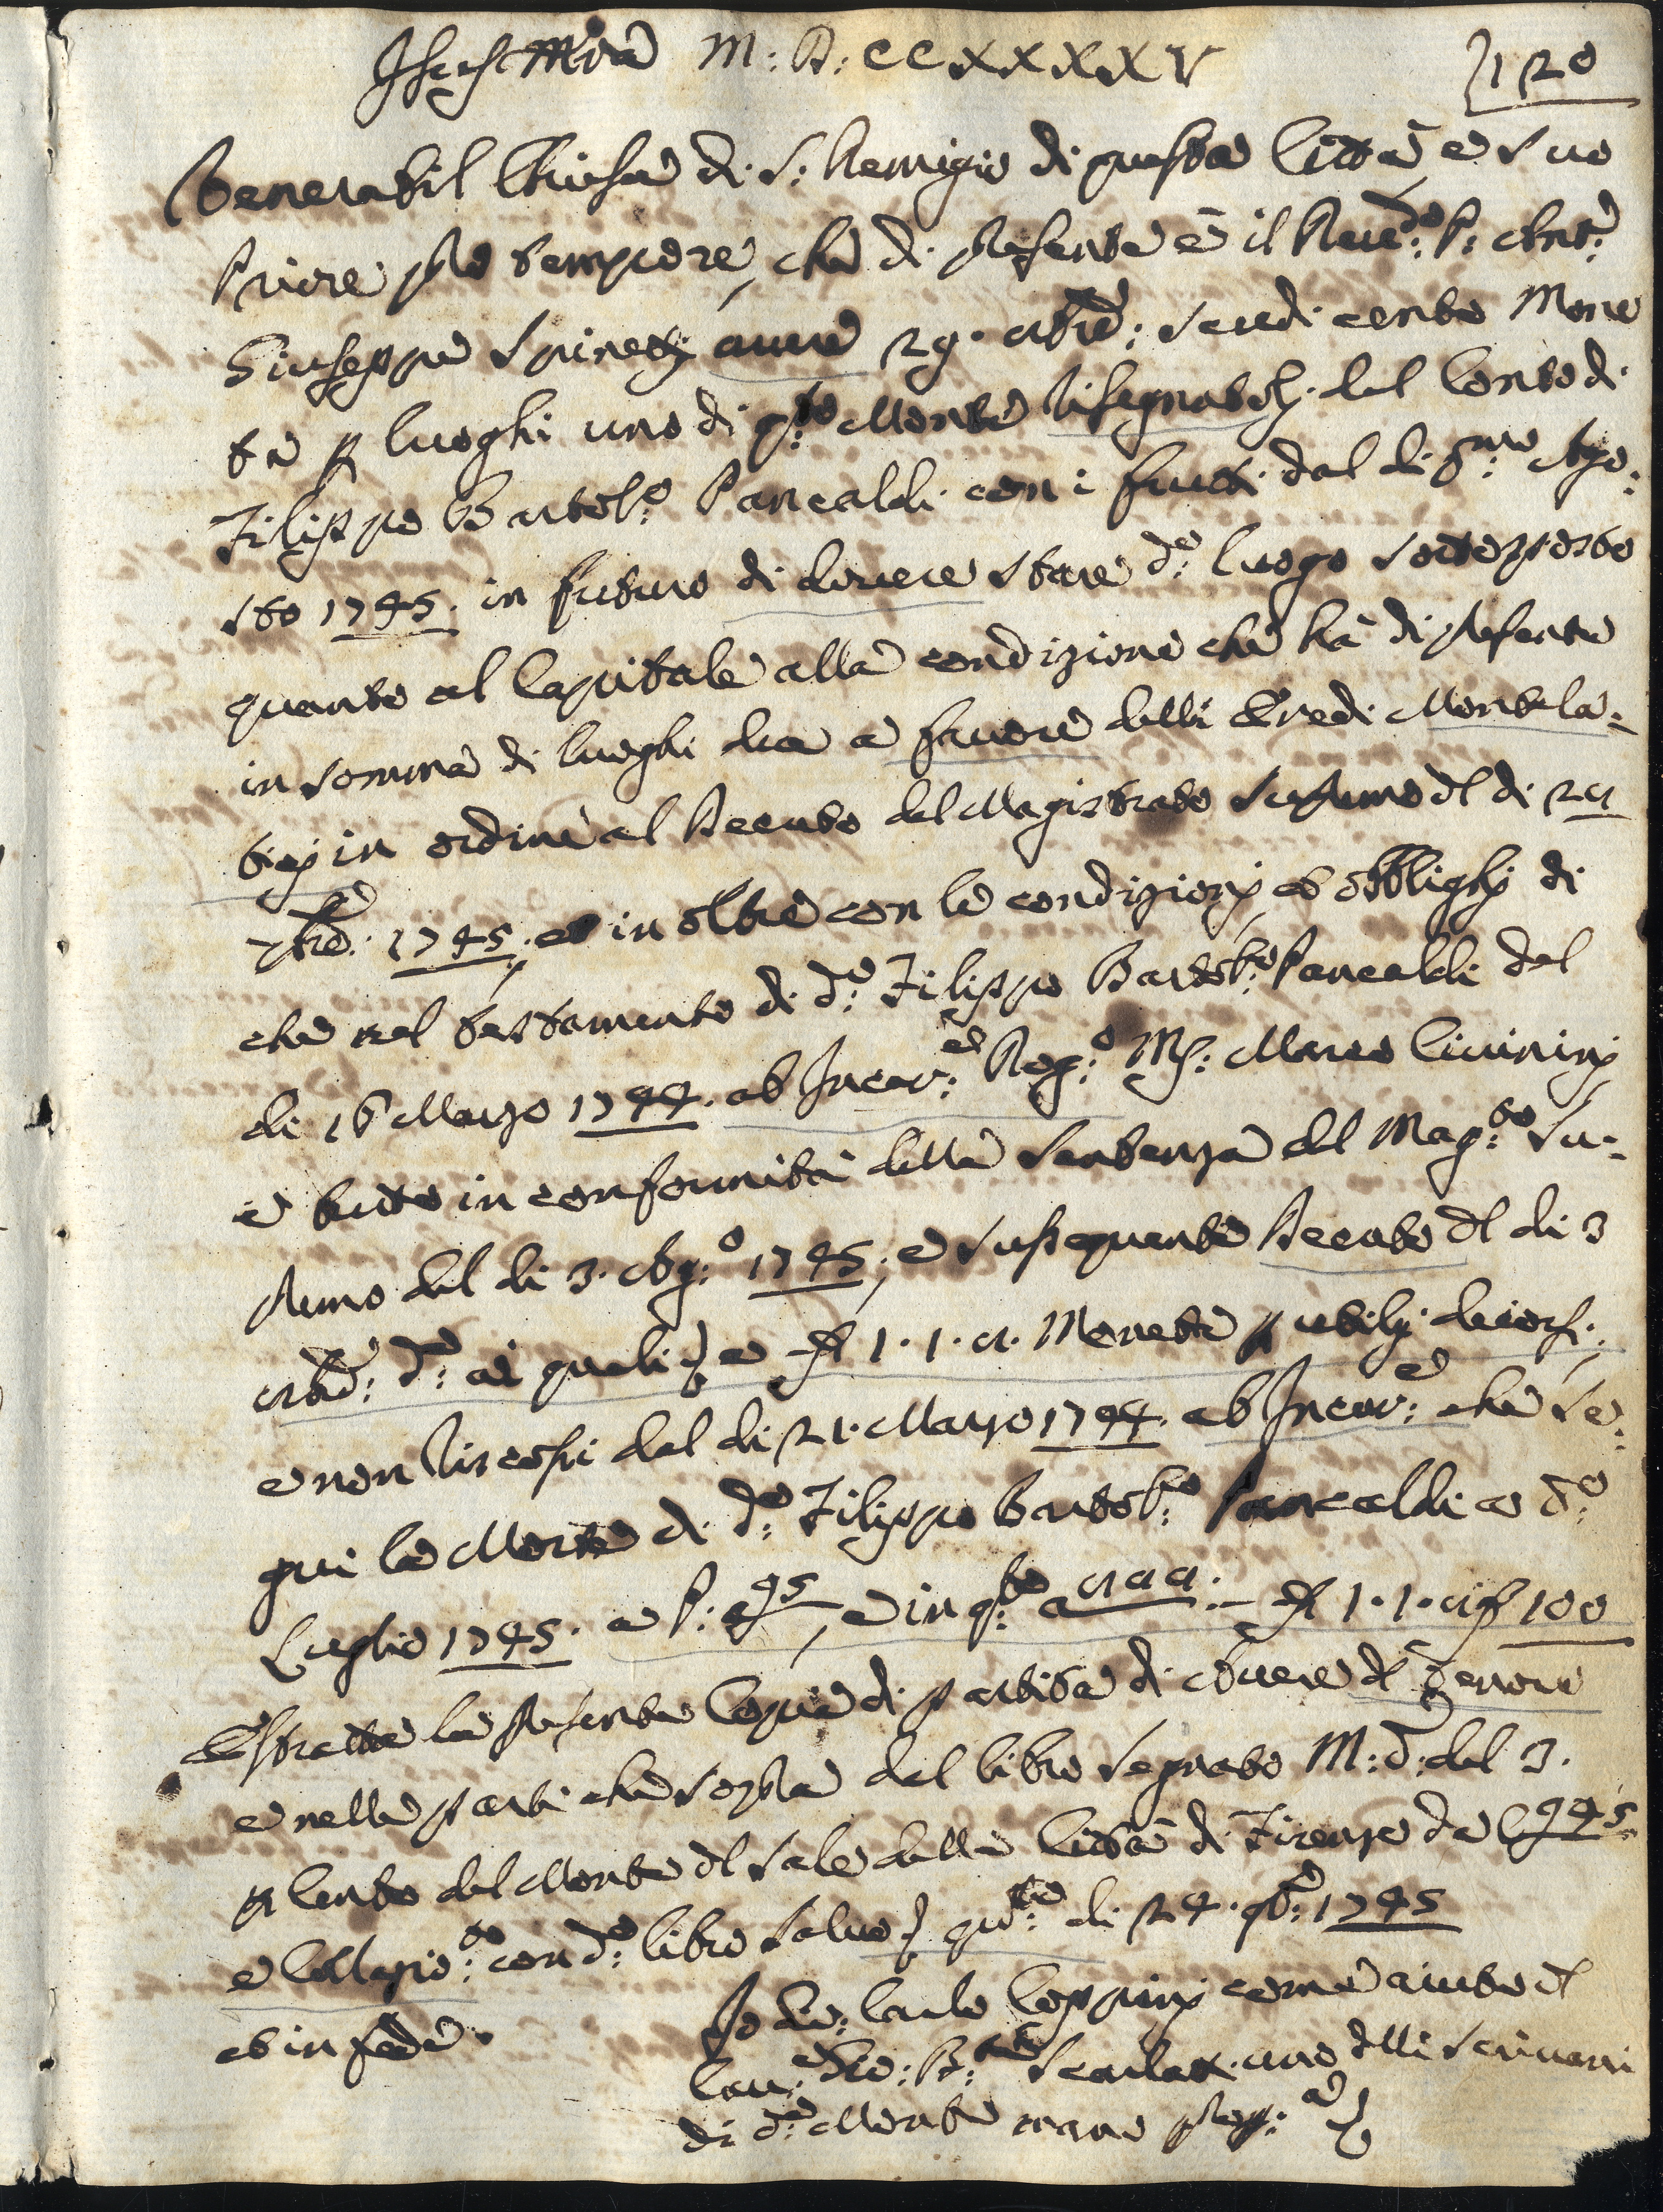 M: D: CCXXXXV 120
Venerabil Chiesa di S: Remigio di questa Città e suo
Priore pro tempore, che di presente è il Reve:do P: Ant:o
Giuseppe avere 29. 8bre: scudi cento Mone
ta p luoghi uno di q:to Monte del Conto di
Filippo Bartol:o Pancaldi con i frutti dal di p:mo Ago:
sto 1745. in futuro di dovere stare d:o luogo sottoposto
quanto al Capitale alla condizione che hà di presente
in somma di luoghi due a favore delli Eredi Montela:
tici in ordine al Decreto del Magistrato Supremo dl di 29
7bre: 1745; et in oltre con le condizioni, et obblighi di
che nel testamento di d:o Filippo Bartol:o Pancaldi del
di 16 Marzo 1744. ab Incar:e Rog:o Mr: Marco Civinini
e tutto in conformità della Sentenza del Mag:to Su:
premo del di 3. Ag:o 1745; e sussequente Decreto dl di 3
8bre: d:o ai quali e 1. 1. Monete p utili decorsi,
e non riscossi dal di 21. Marzo 1744. ab Incar:e che se:
guì la Morte di d:o Filippo Bartol:o Pancaldi a d:o
Luglio 1745. 1. 1. 100
Estratta la presente Copia di partita di Avere dl
e nelle parti che sopra dal libro segnato M: del 3.
p Cento del Monte dl Sale della Città di Firenze da C 445
e Collazio:to con d:o libro salvo q:to di 24. 9bre: 1745
et in fede.
Io Gio: Carlo Coppini come aiuto dl
Cav:e Gio: B:ta Scarlatti uno delli Scrivani
di d:o Monte mano prop:a